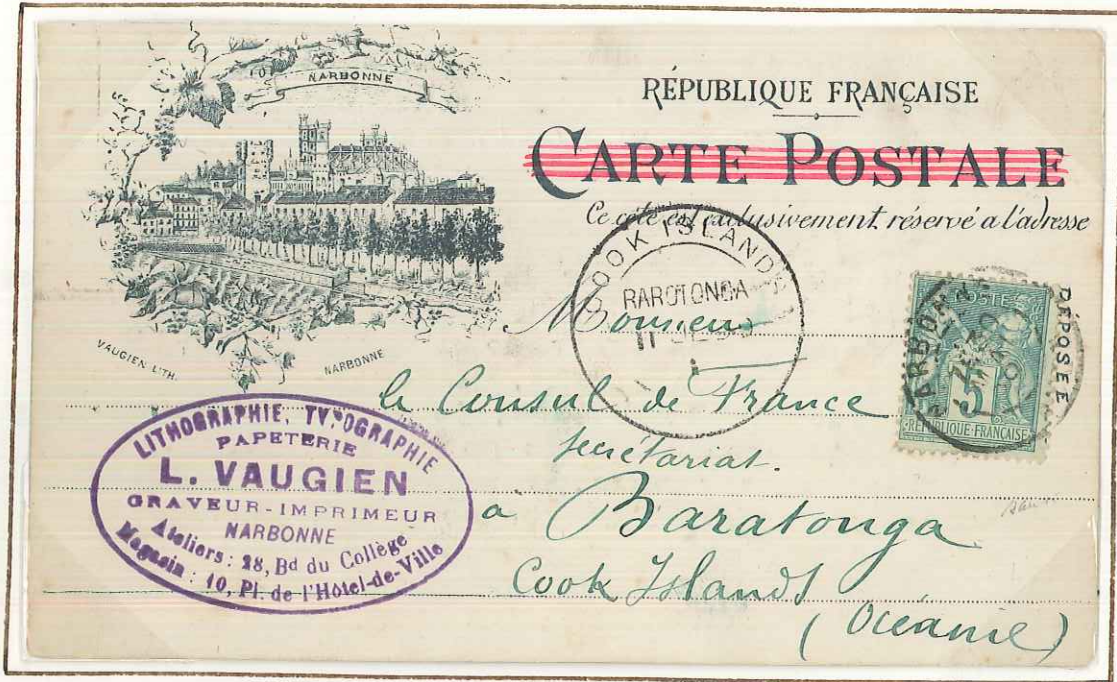 NARBONNE
RÉPUBLIQUE FRANÇAISE
CARTE POSTALE
Ce côté est exclusivement réservé a l'adresse
COOK ISLANDS
RAROTONGA
VAUGIEN LITH.
NARBONNE
DÉPOSÉE
NARBONNE
POSTE
5
REPUBLIQUE FRANÇAISE
Monsieur
le Consul de France
secrétariat.
a Baratonga
Cook Islands
(Océanie)
LITHOGRAPHIE, TYPOGRAPHIE
PAPETERIE
L. VAUGIEN
GRAVEUR-IMPRIMEUR
NARBONNE
Ateliers: 28, Bd du Collège
Magasin: 10, Pl. de l'Hôtel-de-Ville